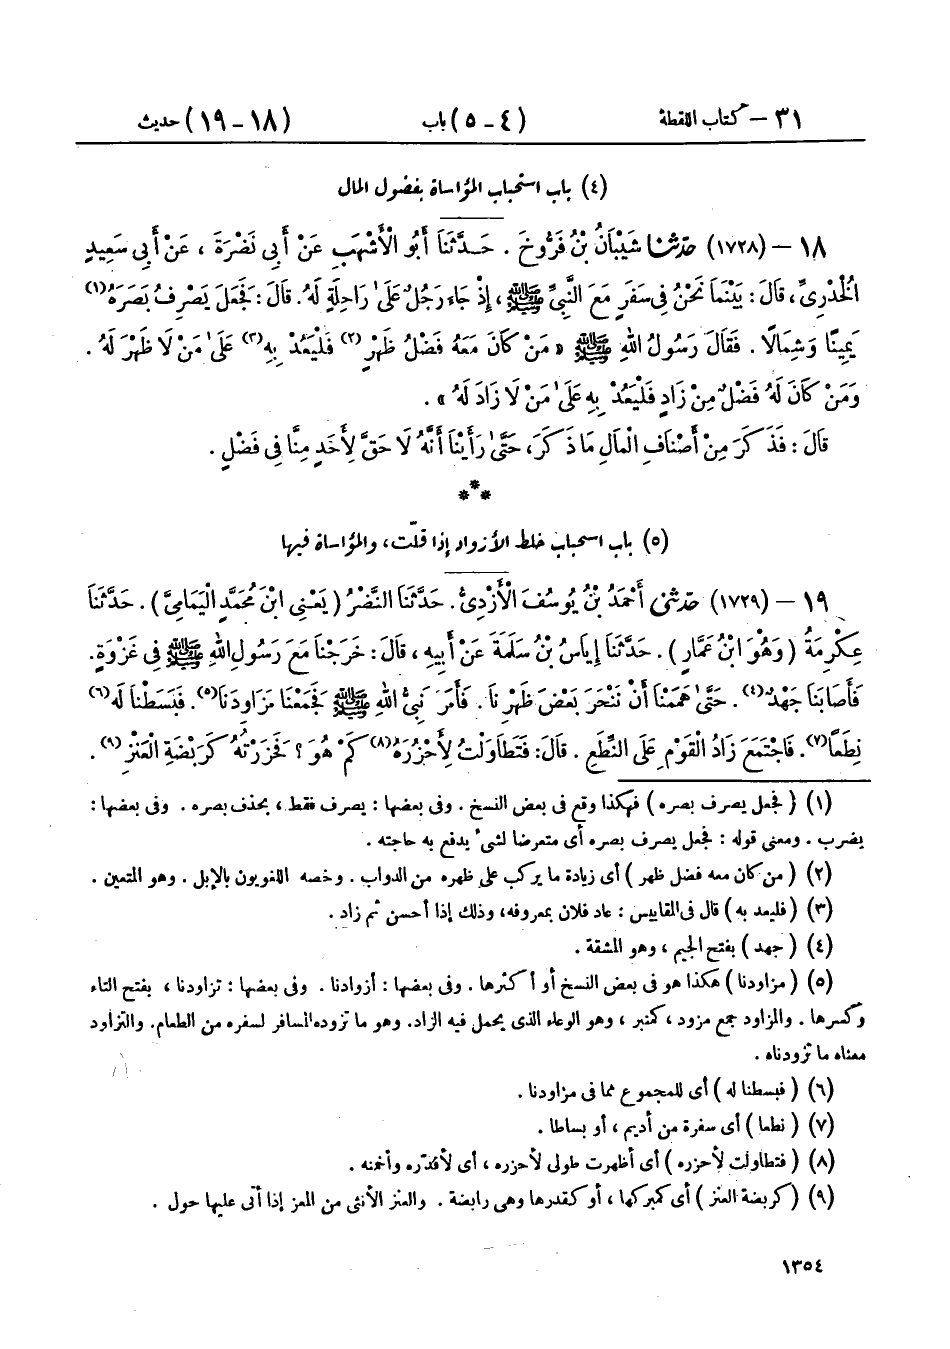 ٣١ – كتاب اللقطة (٤ – ٥) باب (١٨ – ١٩) حديث
(٤) باب استحباب المؤاساة بفضول المال
١٨ – (١٧٢٨) حَدَّثَنَا شَيْبَانُ بْنُ فَرُّوخَ . حَدَّثَنَا أَبُو الْأَشْهَبِ عَنْ أَبِي نَضْرَةَ ، عَنْ أَبِي سَعِيدٍ
الْخُدْرِيِّ ، قَالَ : بَيْنَمَا نَحْنُ فِي سَفَرٍ مَعَ النَّبِيِّ ﷺ ، إِذْ جَاءَ رَجُلٌ عَلَىٰ رَاحِلَةٍ لَهُ. قَالَ : فَجَعَلَ يَصْرِفُ بَصَرَهُ (١)
يَمِينًا وَشِمَالًا . فَقَالَ رَسُولُ اللهِ ﷺ « مَنْ كَانَ مَعَهُ فَضْلُ ظَهْرٍ (٢) فَلْيَعُدْ بِهِ (٣) عَلَىٰ مَنْ لَا ظَهْرَ لَهُ .
وَمَنْ كَانَ لَهُ فَضْلٌ مِنْ زَادٍ فَلْيَعُدْ بِهِ عَلَىٰ مَنْ لَا زَادَ لَهُ » .
قَالَ : فَذَكَرَ مِنْ أَصْنَافِ الْمَالِ مَا ذَكَرَ، حَتَّىٰ رَأَيْنَا أَنَّهُ لَا حَقَّ لِأَحَدٍ مِنَّا فِي فَضْلٍ .
***
(٥) باب استحباب خلط الأزواد إذا قلّت، والمؤاساة فيها
١٩ – (١٧٢٩) حَدَّثَنِي أَحْمَدُ بْنُ يُوسُفَ الْأَزْدِيُّ. حَدَّثَنَا النَّضْرُ ( يَعْنِي ابْنَ مُحَمَّدٍ الْيَمَامِيَّ ) . حَدَّثَنَا
عِكْرِمَةُ ( وَهُوَ ابْنُ عَمَّارٍ ) . حَدَّثَنَا إِيَاسُ بْنُ سَلَمَةَ عَنْ أَبِيهِ ، قَالَ : خَرَجْنَا مَعَ رَسُولِ اللهِ ﷺ فِي غَزْوَةٍ.
فَأَصَابَنَا جَهْدٌ (٤) . حَتَّىٰ هَمَمْنَا أَنْ نَنْحَرَ بَعْضَ ظَهْرِنَا . فَأَمَرَ نَبِيُّ اللهِ ﷺ فَجَمَعْنَا مَزَاوِدَنَا (٥). فَبَسَطْنَا لَهُ (٦)
نِطَعًا (٧). فَاجْتَمَعَ زَادُ الْقَوْمِ عَلَى النِّطَعِ . قَالَ: فَتَطَاوَلْتُ لِأَحْزُرَهُ (٨) كَمْ هُوَ ؟ فَحَزَرْتُهُ كَرَبْضَةِ الْعَنْزِ (٩) .
(١) ( فجعل يصرف بصره ) فهكذا وقع في بعض النسخ . وفي بعضها : يصرف فقط ، بحذف بصره . وفي بعضها :
يضرب . ومعنى قوله : فجعل يصرف بصره أى متعرضا لشىء يدفع به حاجته .
(٢) ( من كان معه فضل ظهر ) أى زيادة ما يركب على ظهره من الدواب . وخصه اللغويون بالإبل . وهو المتعين .
(٣) ( فليعد به ) قال في المقاييس : عاد فلان بمعروفه، وذلك إذا أحسن ثم زاد .
(٤) ( جهد ) بفتح الجيم ، وهو المشقة .
(٥) ( مزاودنا ) هكذا هو في بعض النسخ أو أكثرها . وفي بعضها : أزوادنا . وفي بعضها : تزاودنا ، بفتح التاء
وكسرها . والمزاود جمع مزود ، كمنبر ، وهو الوعاء الذى يحمل فيه الزاد. وهو ما تزوده المسافر لسفره من الطعام. والتزاود
معناه ما تزودناه .
(٦) ( فبسطنا له ) أى للمجموع مما في مزاودنا .
(٧) ( نطعا ) أى سفرة من أديم ، أو بساطا .
(٨) ( فتطاولت لأحزره ) أى أظهرت طولى لأحزره ، أى لأقدّره وأخمنه .
(٩) ( كربضة العنز ) أى كمبركها ، أو كقدرها وهى رابضة . والعنز الأنثى من المعز إذا أتى عليها حول .
١٣٥٤